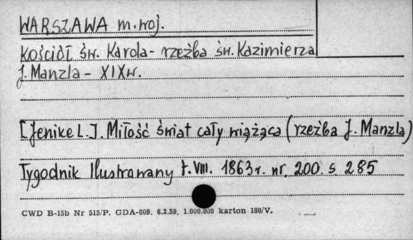 WARSZAWA m. woj.
Kościół św. Karola - rzeźba św. Kazimierza
J. Manzla - XIX w.
[Jenike L.]. Miłość świat cały wiążąca (rzeźba J. Manzla)
Tygodnik Ilustrowany t. VIII. 1863 r. nr. 200. s 285
CWD B-15b Nr 515/P. GDA-809. 6.3.59. 1.000.000 karton 180/V.